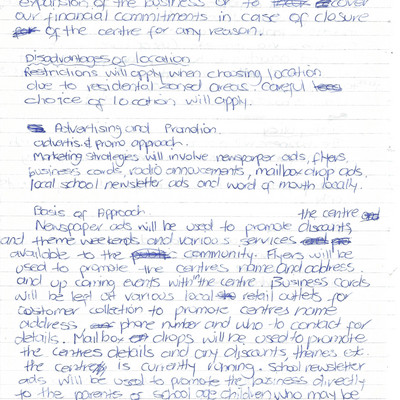 expansion of the business or to cover
our financial commitments in case of closure
of the centre for any reason.
Disadvantages of location
Restrictions will apply when choosing location
due to residential zoned areas. Careful
choice of location will apply.
Advertising and Promotion.
advertis & promo approach.
Marketing strategies will involve newspaper ads, flyers.
business cards, radio annoucements, mailbox drop ads.
local school newsletter ads and word of mouth locally.
Basis of Approach
the centre
Newspaper ads will be used to promote discounts,
and theme weekends and various services
available to the community. Flyers will be
used to promote the centres name and address.
and up coming events within the centre. Business cards
will be left at various local retail outlets for
customer collection to promote centres name
address, phone number and who to contact for
details. Mailbox drops will be used to promote
the centres details and any discounts, themes etc.
the centre is currently running. School newsletter
ads will be used to promote the business directly
to the parents of school age children who may be